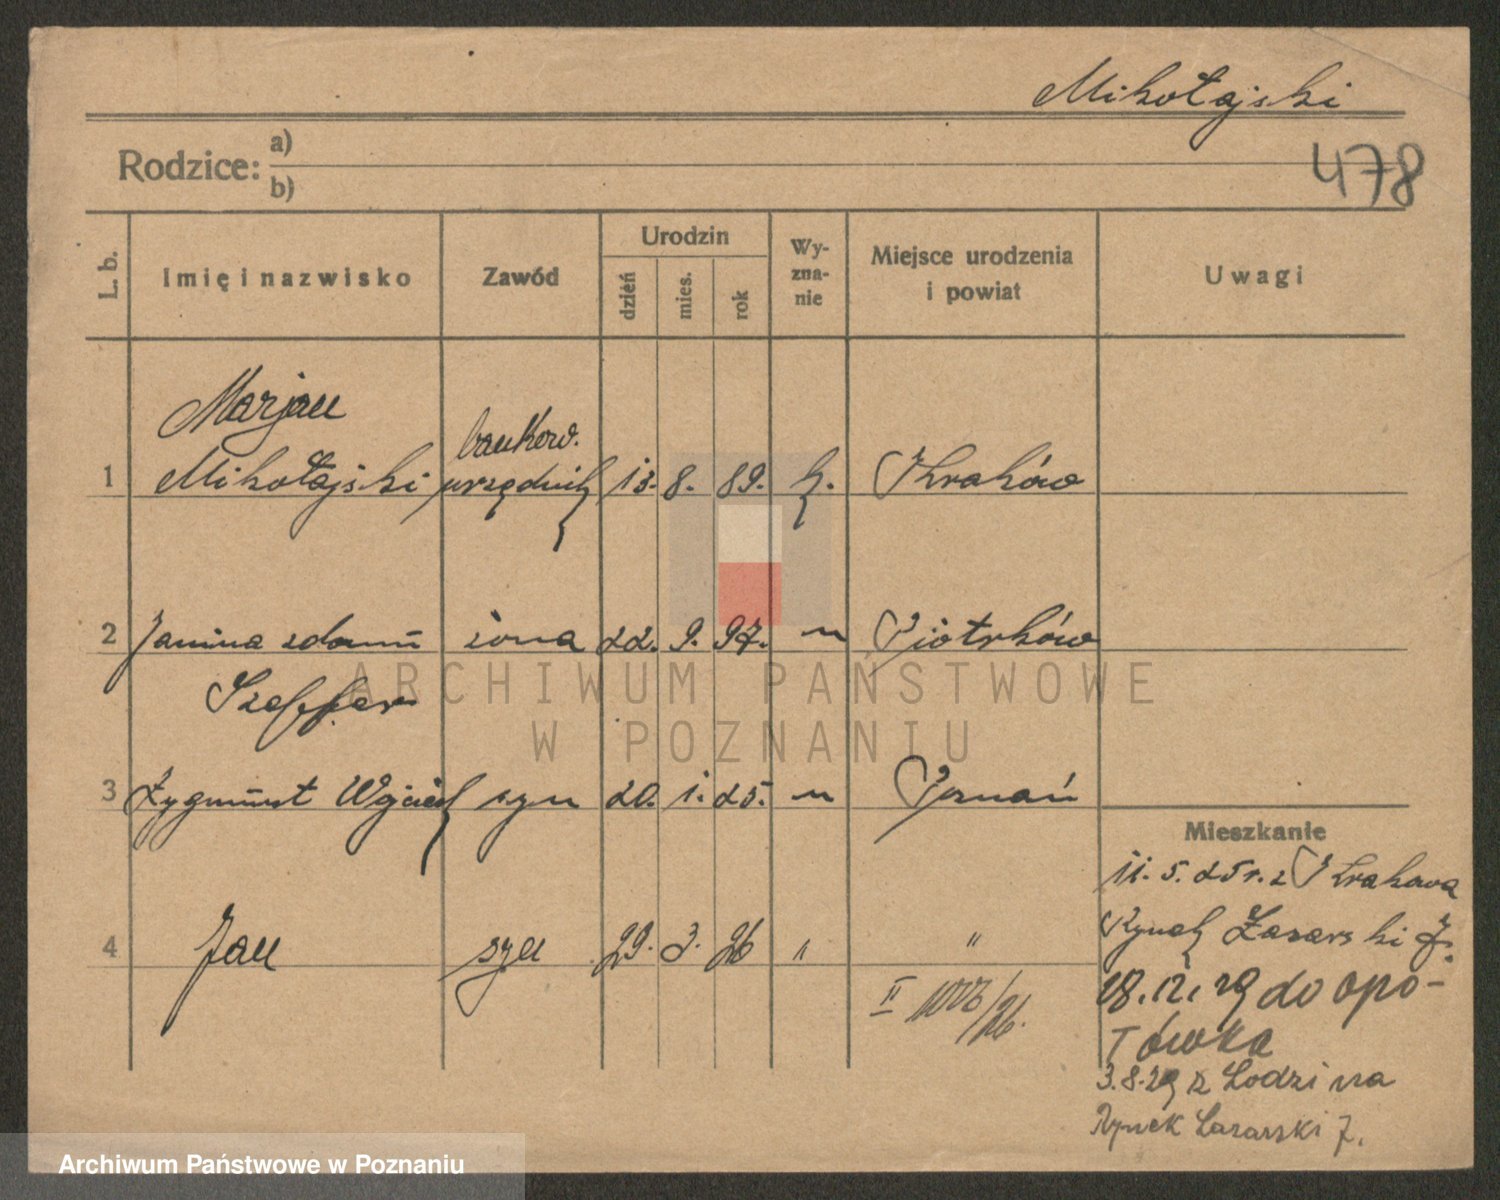 Mikołajski
478
Rodzice: a)
b)
L. b.
Imię i nazwisko
Zawód
Urodzin
dzień
mies.
rok
Wy-
zna-
nie
Miejsce urodzenia
i powiat
Uwagi
1
Marjan
Mikołajski
bankow.
urzędnik
13. 8. 89.
k.
Kraków
2 Janina z domu żona 22. 9. 97. " Piotrków
3 Zygmunt Wojciech syn 20. 1. 25. " Poznań
4 Jan syn 29. 3. 26 " "
II
/26.
Mieszkanie
11. 5. 25 r. z Krakowa
Rynek Łazarski 7.
28.12.29 do Opo-
tówka
3.8.29 z Łodzi na
Rynek Łazarski 7.
ARCHIWUM PAŃSTWOWE
W POZNANIU
Archiwum Państwowe w Poznaniu